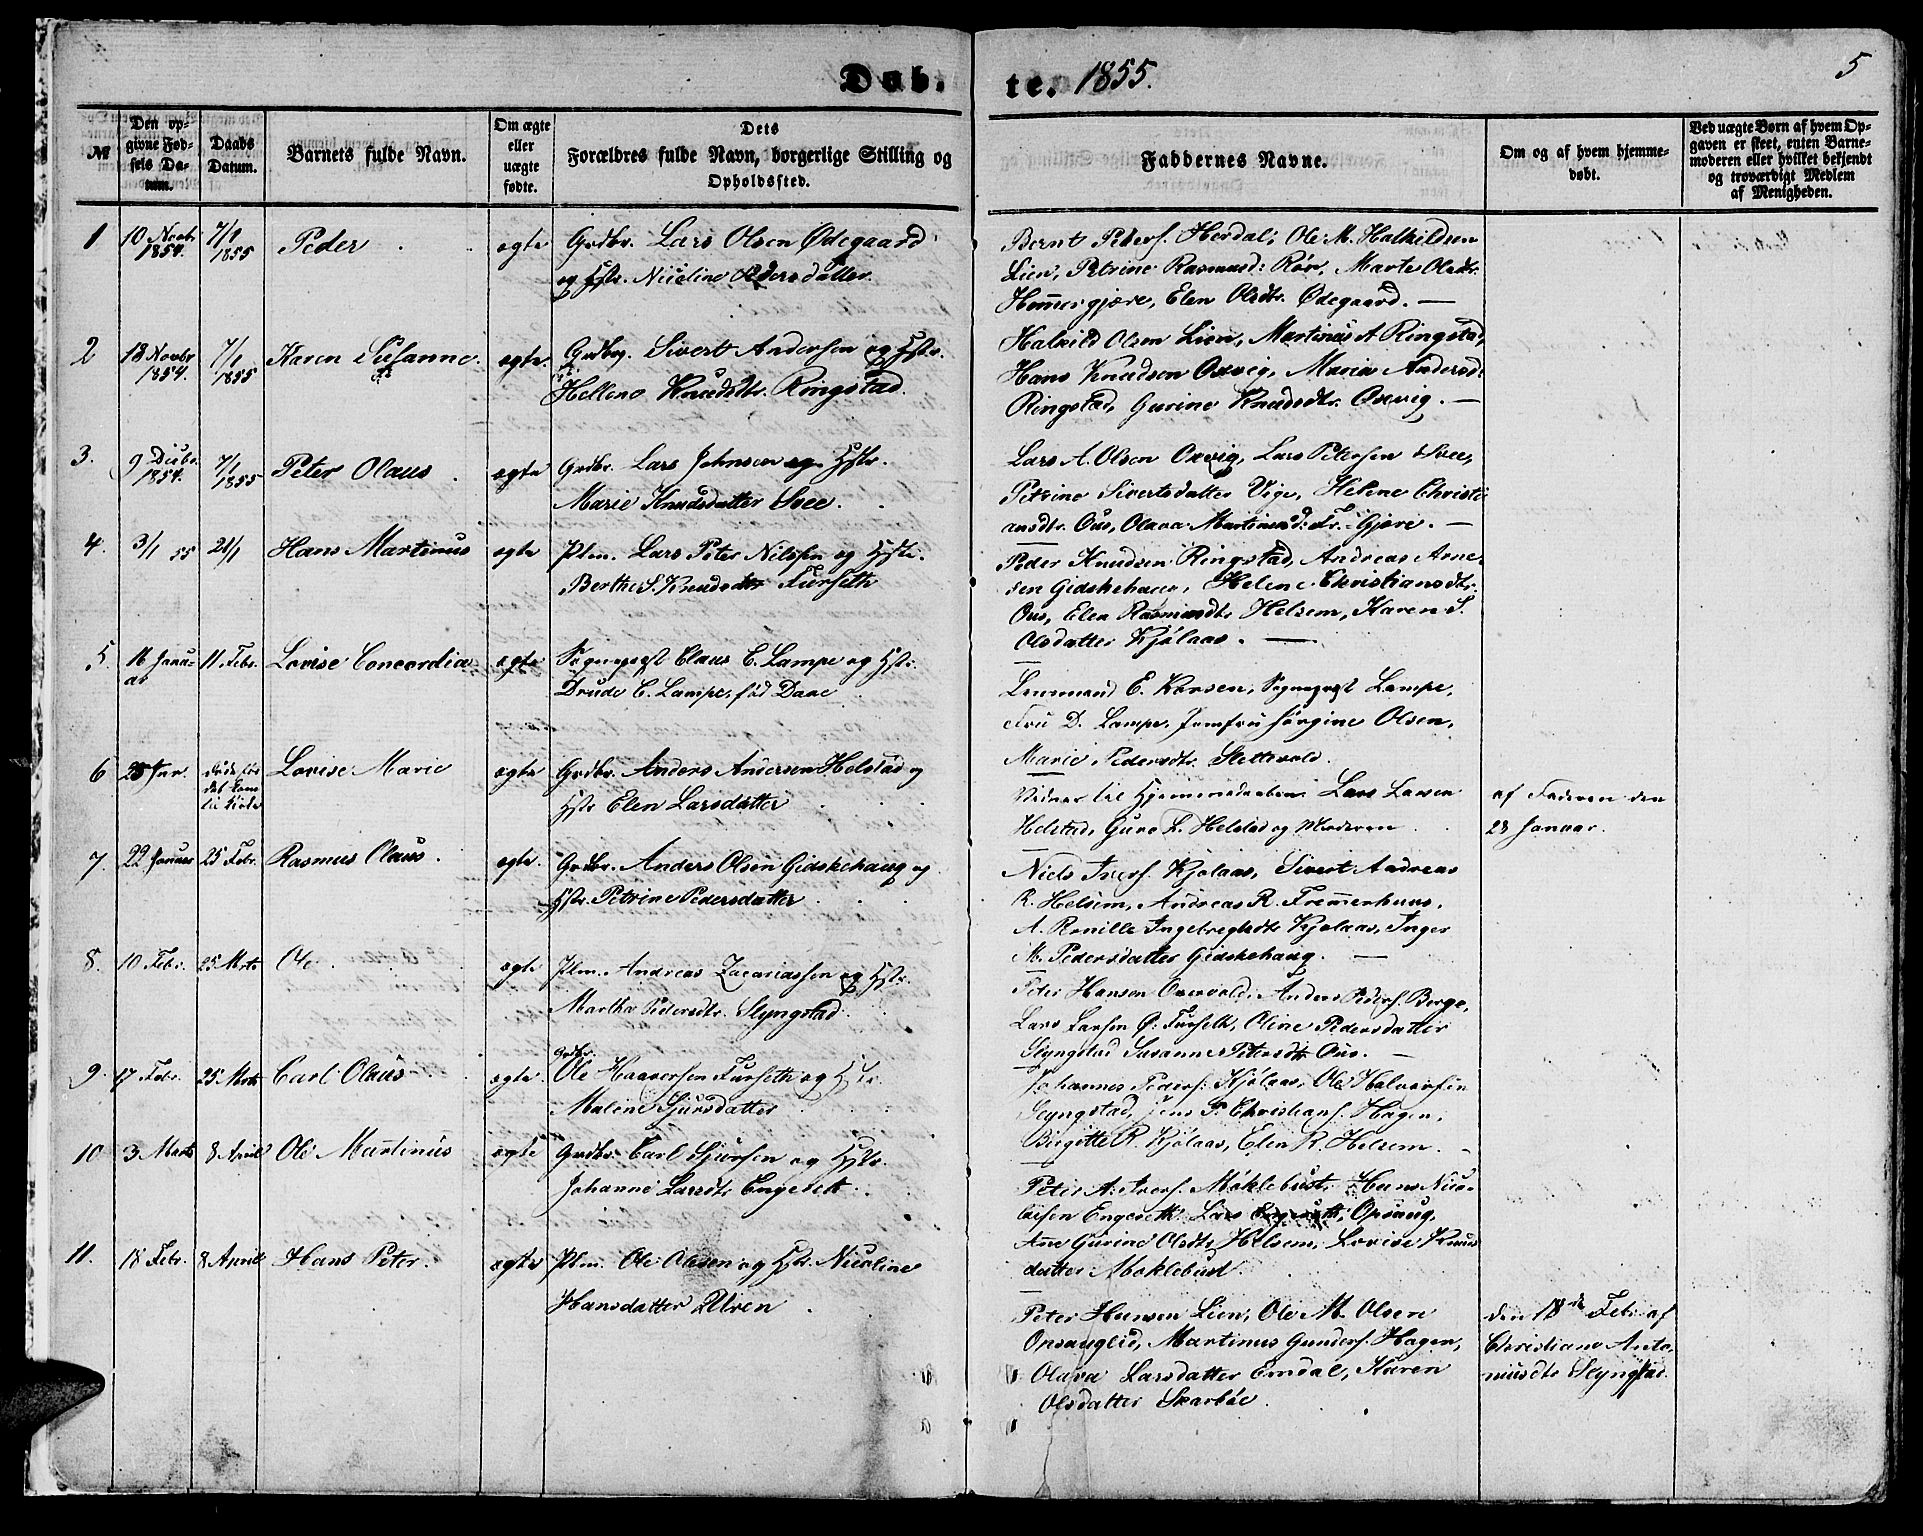 Døb-
te. 1855.
5
№
Den opgivne Fødsels Datum.
Daabs Datum.
Barnets fulde Navn.
Om ægte eller uægte fødte.
Dets Forældres fulde Navn, borgerlige Stilling og Opholdssted.
Faddernes Navne.
Om og af hvem hjemmedøbt.
Ved uægte Børn af hvem Opgaven er skeet, enten Barnemoderen eller hvilket bekjendt og troværdigt Medlem af Menigheden.
1 10 Novbr 1854. 7/1 1855 Peder ægte Grdbr. Lars Olsen Ødegaard
og Hstr. Nicoline Pedersdatter.
Bernt Peders. Herdal, Ole M. Halkildsen
Lien, Petrine Rasmusd: Rør, Marte Olsdtr.
Hammergjære, Elen Olsdtr. Ødegaard. —
2 13 Novbr 1854. 7/1 1855 Karen Susanne ægte Grdbr. Sivert Andersen og Hstr.
Hellene Knudsdtr. Ringstad.
Halkild Olsen Lien, Martinus A Ringstad,
Hans Knudsen Oxvig, Maria Andersd:
Ringstad, Gurine Knudsdtr. Oxvig. —
3. 9 Decbr. 1854. 7/1 1855 Peter Olaus ægte Grdbr. Lars Johnsen og Hstr.
Marie Knudsdatter Svee.
Lars A. Olsen Oxvig, Lars Petersen Svee,
Petrine Sivertsdatter Vige, Helene Christi
ansdtr. Ous, Olava Martinusd: Fr. Gjære. —
4. 3/1 55 21/1 Hans Martinus ægte Plm. Lars Peter Nilssen og Hstr.
Berthe S. Knudsdtr Furseth
Peder Knudsen Ringstad, Andreas Arne-
sen Gidskehaug, Helene Christiansdtr.
Ous, Elen Rasmusdtr Helsem, Karen S.
Olsdatter Kjølaas. —
5 16 Janu-
ar 11 Febr. Lovise Concordia ægte Sognepræst Claus C. Lampe og Hstr.
Drude C. Lampe, fød Daae
Lensmand E. Hansen, Sognepræst Lampe,
Fru D. Lampe, Jomfru Jørgine Olsen,
Marie Pedersdtr. Slettevold.
6 Jan. døde før
det kom
til Kirke Lovise Marie ægte Grdbr. Anders Andersen Helstad og
Hstr Elen Larsdatter
Vidner til Hjemmedaaben Lars Larsen
Helstad, Guro L. Helstad og Moderen
af Faderen den
28 Januar.
7. 22 Januar 25 Febr. Rasmus Olaus. ægte. Grdbr. Anders Olsen Gidskehaug og
Hstr. Petrine Pedersdatter
Niels Ivers. Kjølaas, Sivert Andreas
R. Helsem, Andreas R. Fremmerhuus,
A. Ronille Ingebrigtsdtr Kjølaas, Inger
M. Pedersdatter Gidskehaug. —
8. 10 Febr. 25 Mrts Ole ægte Plm. Andreas Zacariassen og Hstr.
Martha Pedersdtr. Slyngstad
Peter Hansen Overvold, Anders Peders. Berge,
Lars Larsen Ø: Furseth, Oline Pedersdatter
Slyngstad Susanne Petersdtr Ous. —
9. 17 Febr. 25 Mrts Carl Olaus ægte Grdbr.
Ole Haaversen Furseth og Hstr.
Maline Sjursdatter
Johannes Peders: Kjølaas, Ole Halvorsen
Slyngstad, Jens P. Christians. Hagen,
Birgitte R. Kjølaas, Elen R. Helsem.
10 3 Marts 8 April Ole Martinus ægte Grdbr. Carl Sjursen og Hstr.
Johanne Larsdtr Engeseth
Peter A. Ivers. Møklebust, Hans Nico-
laisen Engeseth, Lars Opsaug,
Ane Gurine Olsdtr Helsem, Lovise Knuds
datter Møklebust.
11. 18 Febr. 8 April Hans Peter. ægte Plm. Ole Olesen og Hstr. Nicoline
Hansdatter Uren
Peter Hansen Lien, Ole M. Olsen
Opsauglid, Martinus Gunders. Hagen,
Olava Larsdatter Emdal, Karen
Olsdatter Skarbøe.
den 18de Febr. af
Christiane Anto-
niusdtr Slyngstad.